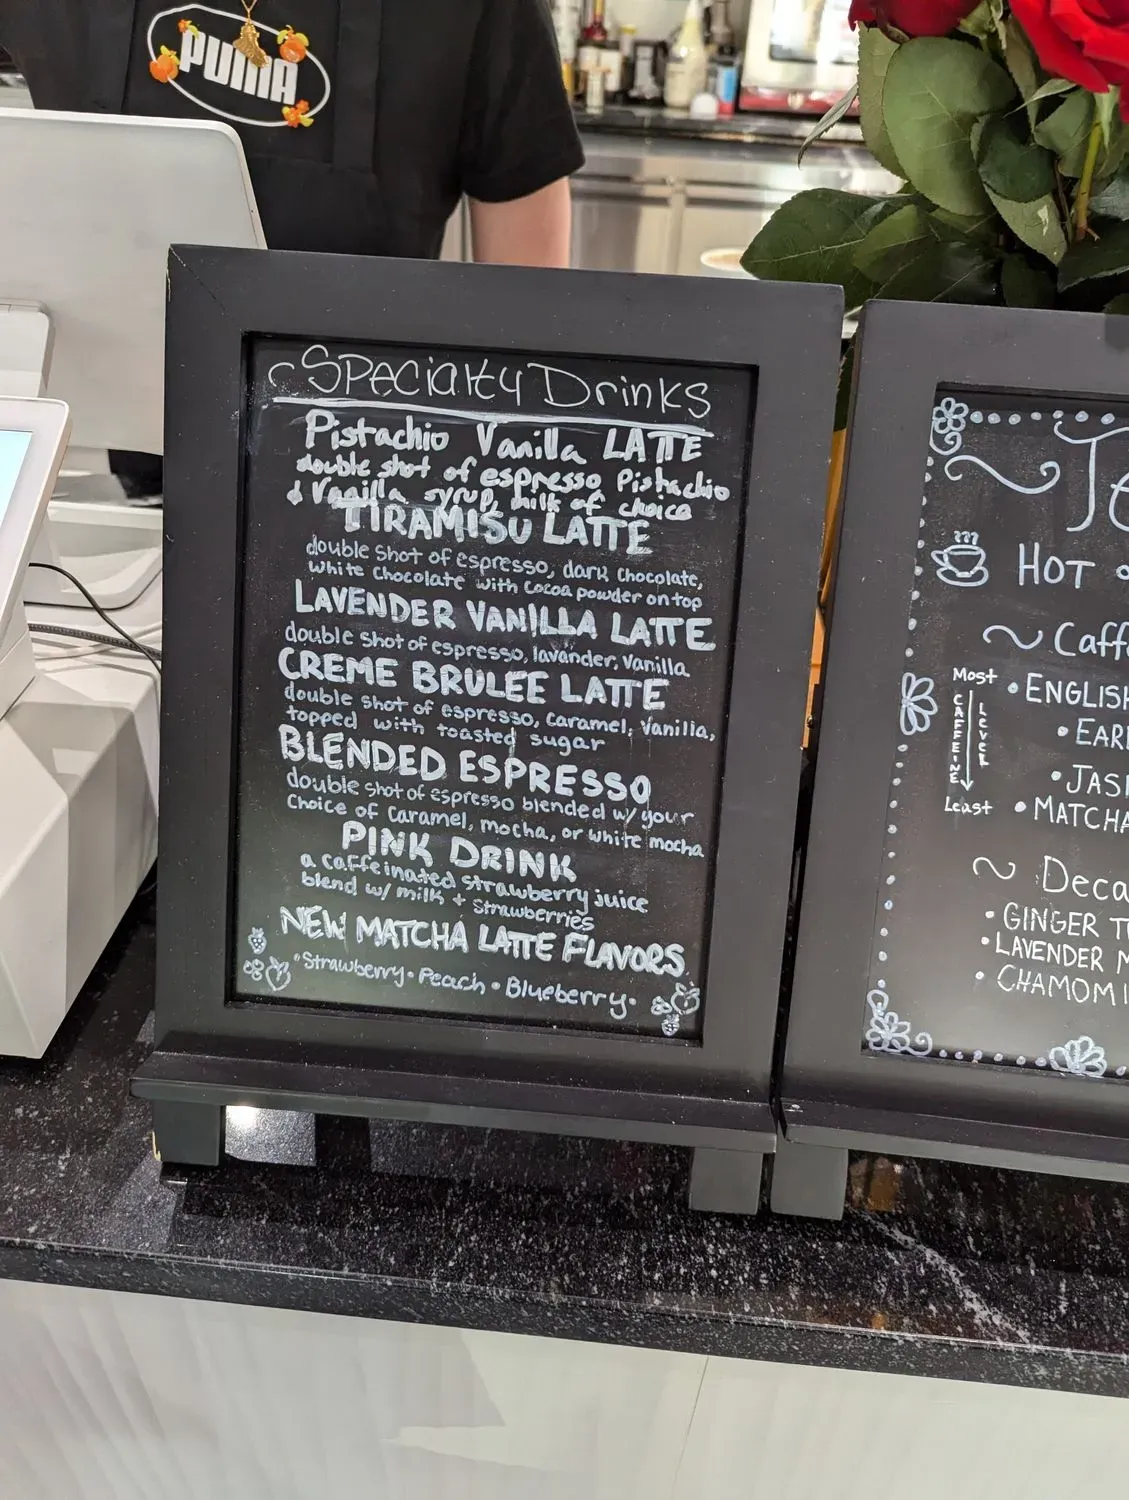 PUMA
Specialty Drinks
Pistachio Vanilla LATTE
double shot of espresso Pistachio
& Vanilla syrup, milk of choice
TIRAMISU LATTE
double shot of espresso, dark chocolate,
white chocolate with cocoa powder on top
LAVENDER VANILLA LATTE
double shot of espresso, lavander, vanilla
CREME BRULEE LATTE
double shot of espresso, caramel, vanilla,
topped with toasted sugar
BLENDED ESPRESSO
double shot of espresso blended w/ your
choice of caramel, mocha, or white mocha
PINK DRINK
a caffeinated strawberry juice
blend w/ milk + strawberries
NEW MATCHA LATTE FLAVORS
•Strawberry • Peach • Blueberry•
Te
HOT
~ Caff
Most
CAFFEINE
LEVEL
Least
• ENGLISH
• EAR
• JAS
• MATCHA
~ Deca
• GINGER T
• LAVENDER
• CHAMOMI